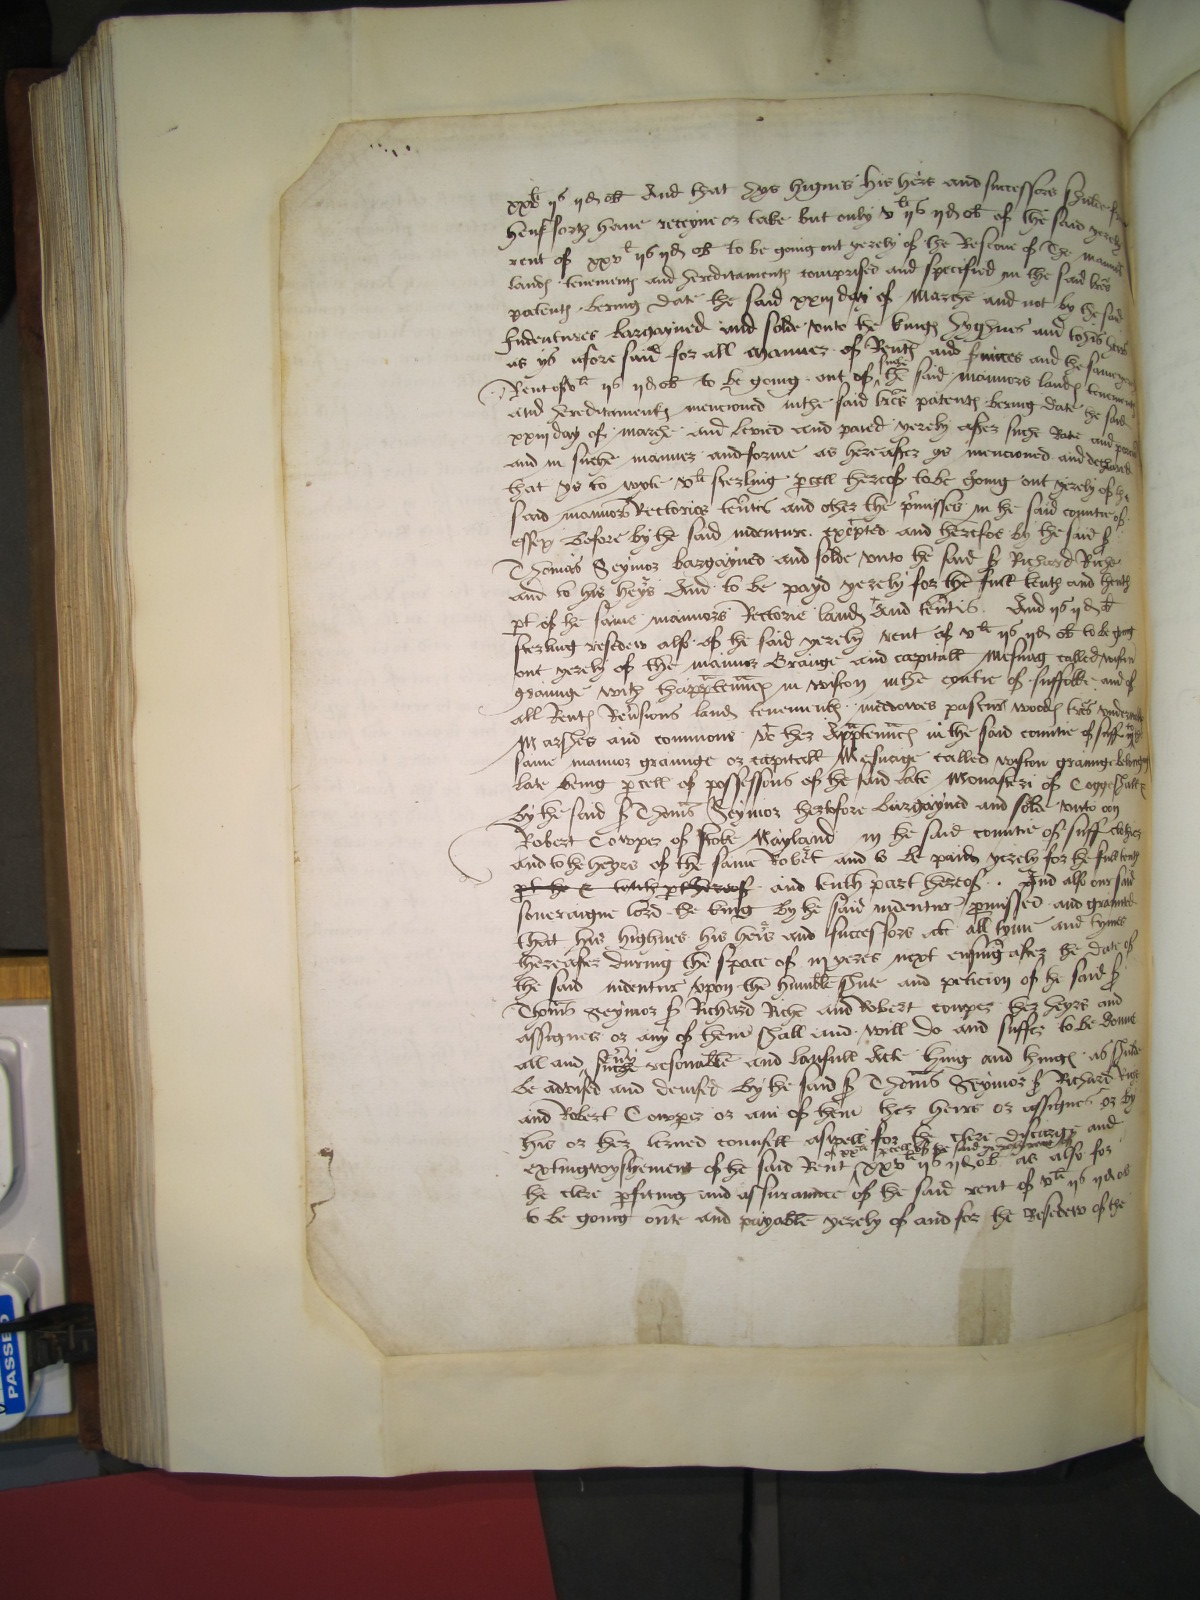 xxvli ijs ijd ob And that hys highnes his heirs and successors shulde
hensforth haue receyue or take but only vli ijs ijd ob of the said yerely
rent of xxvli ijs ijd ob to be going out yerely of the Rescue of The mannors
landes tenementes and hereditamentes comprised and specified in the said lres
patentes bering date the said xxiij day of Marche and not by the said
Indentures bargayned and solde vnto the kinges hyghnes and to his heirs
as ys afore said for all manner of Rentes and seruices and the same
Rent of vli ijs ijd ob to be going out of the said mannors landes tenementes
and hereditamentes mencioned in the said lres patentes bering date the said
xxiij day of marche and levied and paied yerely after suche Rate and
and in suche manner and forme as hereafter ys mencioned and declared
that ys to wyte vli sterling pcell therof to be going out yerely of the
said mannors Rectories tentes and other the pmisses in the said countie of
essex before by the said indenture excepted and therefore by the said Sr
Thomas Seymor bargayned and solde vnto the said Sr Richard Riche
and to his heyrs And to be payd yerely for the full tenth and tenth
pt of the same mannors Rectorie landes And tentes. And ijs ijd ob
sterling resedew also of the said yerely rent of vli ijs ijd ob to be going
out yerely of the mannor Graunge and capitall Mesuag called wiston
graunge with thapptennces in wiston in the countie of suffolke and of
all Rentes Reusions landes tenementes medowes pastures woodes
Marshes and commons apptenncs in the said countie of suff to the
same mannor graunge or capitall Mesuage called wiston graunge belonging
late being pcell of possessions of the said late Monasteri of Coggeshall &
by the said Sr Thoms Seymor hertofore bargayned and solde vnto on
Robert Cowper of stoke Nayland in the said countie of suff clothier
and to the heyrs of the same Robert and to be paide yerely for the full tenth
and tenth part therof. And also our said
soueraigne lord the king by the said indentur pmissed and graunted
that his highnes his heirs and successors att all tyme and tymes
thereafter during the space of iij yeres next ensuing after the date of
the said indentur vpon the humble sute and peticion of the said Sr
Thoms Seymor Sr Richard Riche and Robert cowper ther heyrs and
assignes or any of them shall and will do and suffer to be donne
all and suche resonable and lawfull Acte thing and thinges as shulde
be advised and devised by the said Sr Thoms Seymor Sr Richard Riche
and Robert Cowper or ani of them ther heirs or assignes or by
his or ther lerned counsell aswell for the clere discharge and
extingwyshement of the said Rent xxvli ijs ijd ob as also for
the clere pfiting and assuraunce of the said rent of vli ijs ijd ob
to be going oute and payable yerely of and for the Resedew of the
PASSED